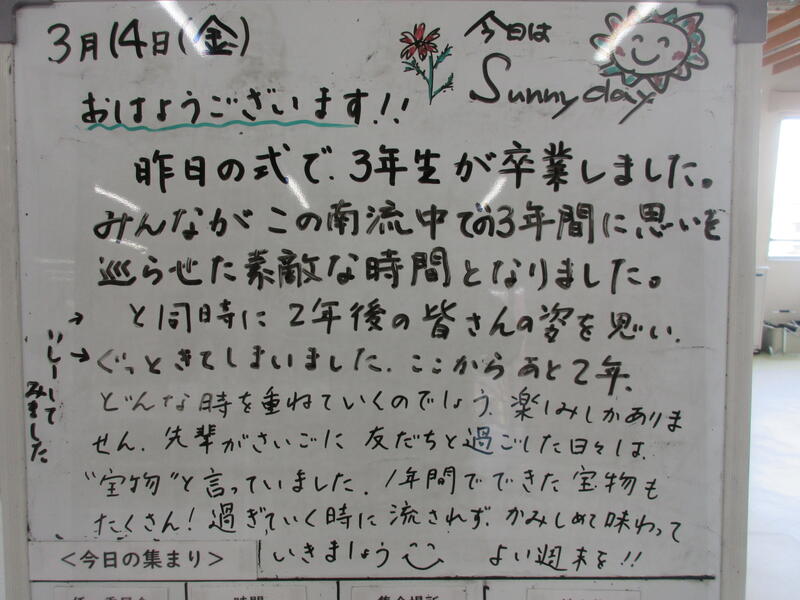 3月14日(金)
今日は
Sunny day
おはようございます!!
昨日の式で、3年生が卒業しました。
みんながこの南流中での3年間に思いを
巡らせた素敵な時間となりました。
と同時に2年後の皆さんの姿を思い、
ぐっときてしまいました。ここからあと2年、
どんな時を重ねていくのでしょう。楽しみしかありま
せん。先輩がさいごに友だちと過ごした日々は、
"宝物"と言っていました。1年間でできた宝物も
たくさん!過ぎていく時に流されず、かみしめて味わって
いきましょう
よい週末を!!
みました
<今日の集まり>
時間
集合場所